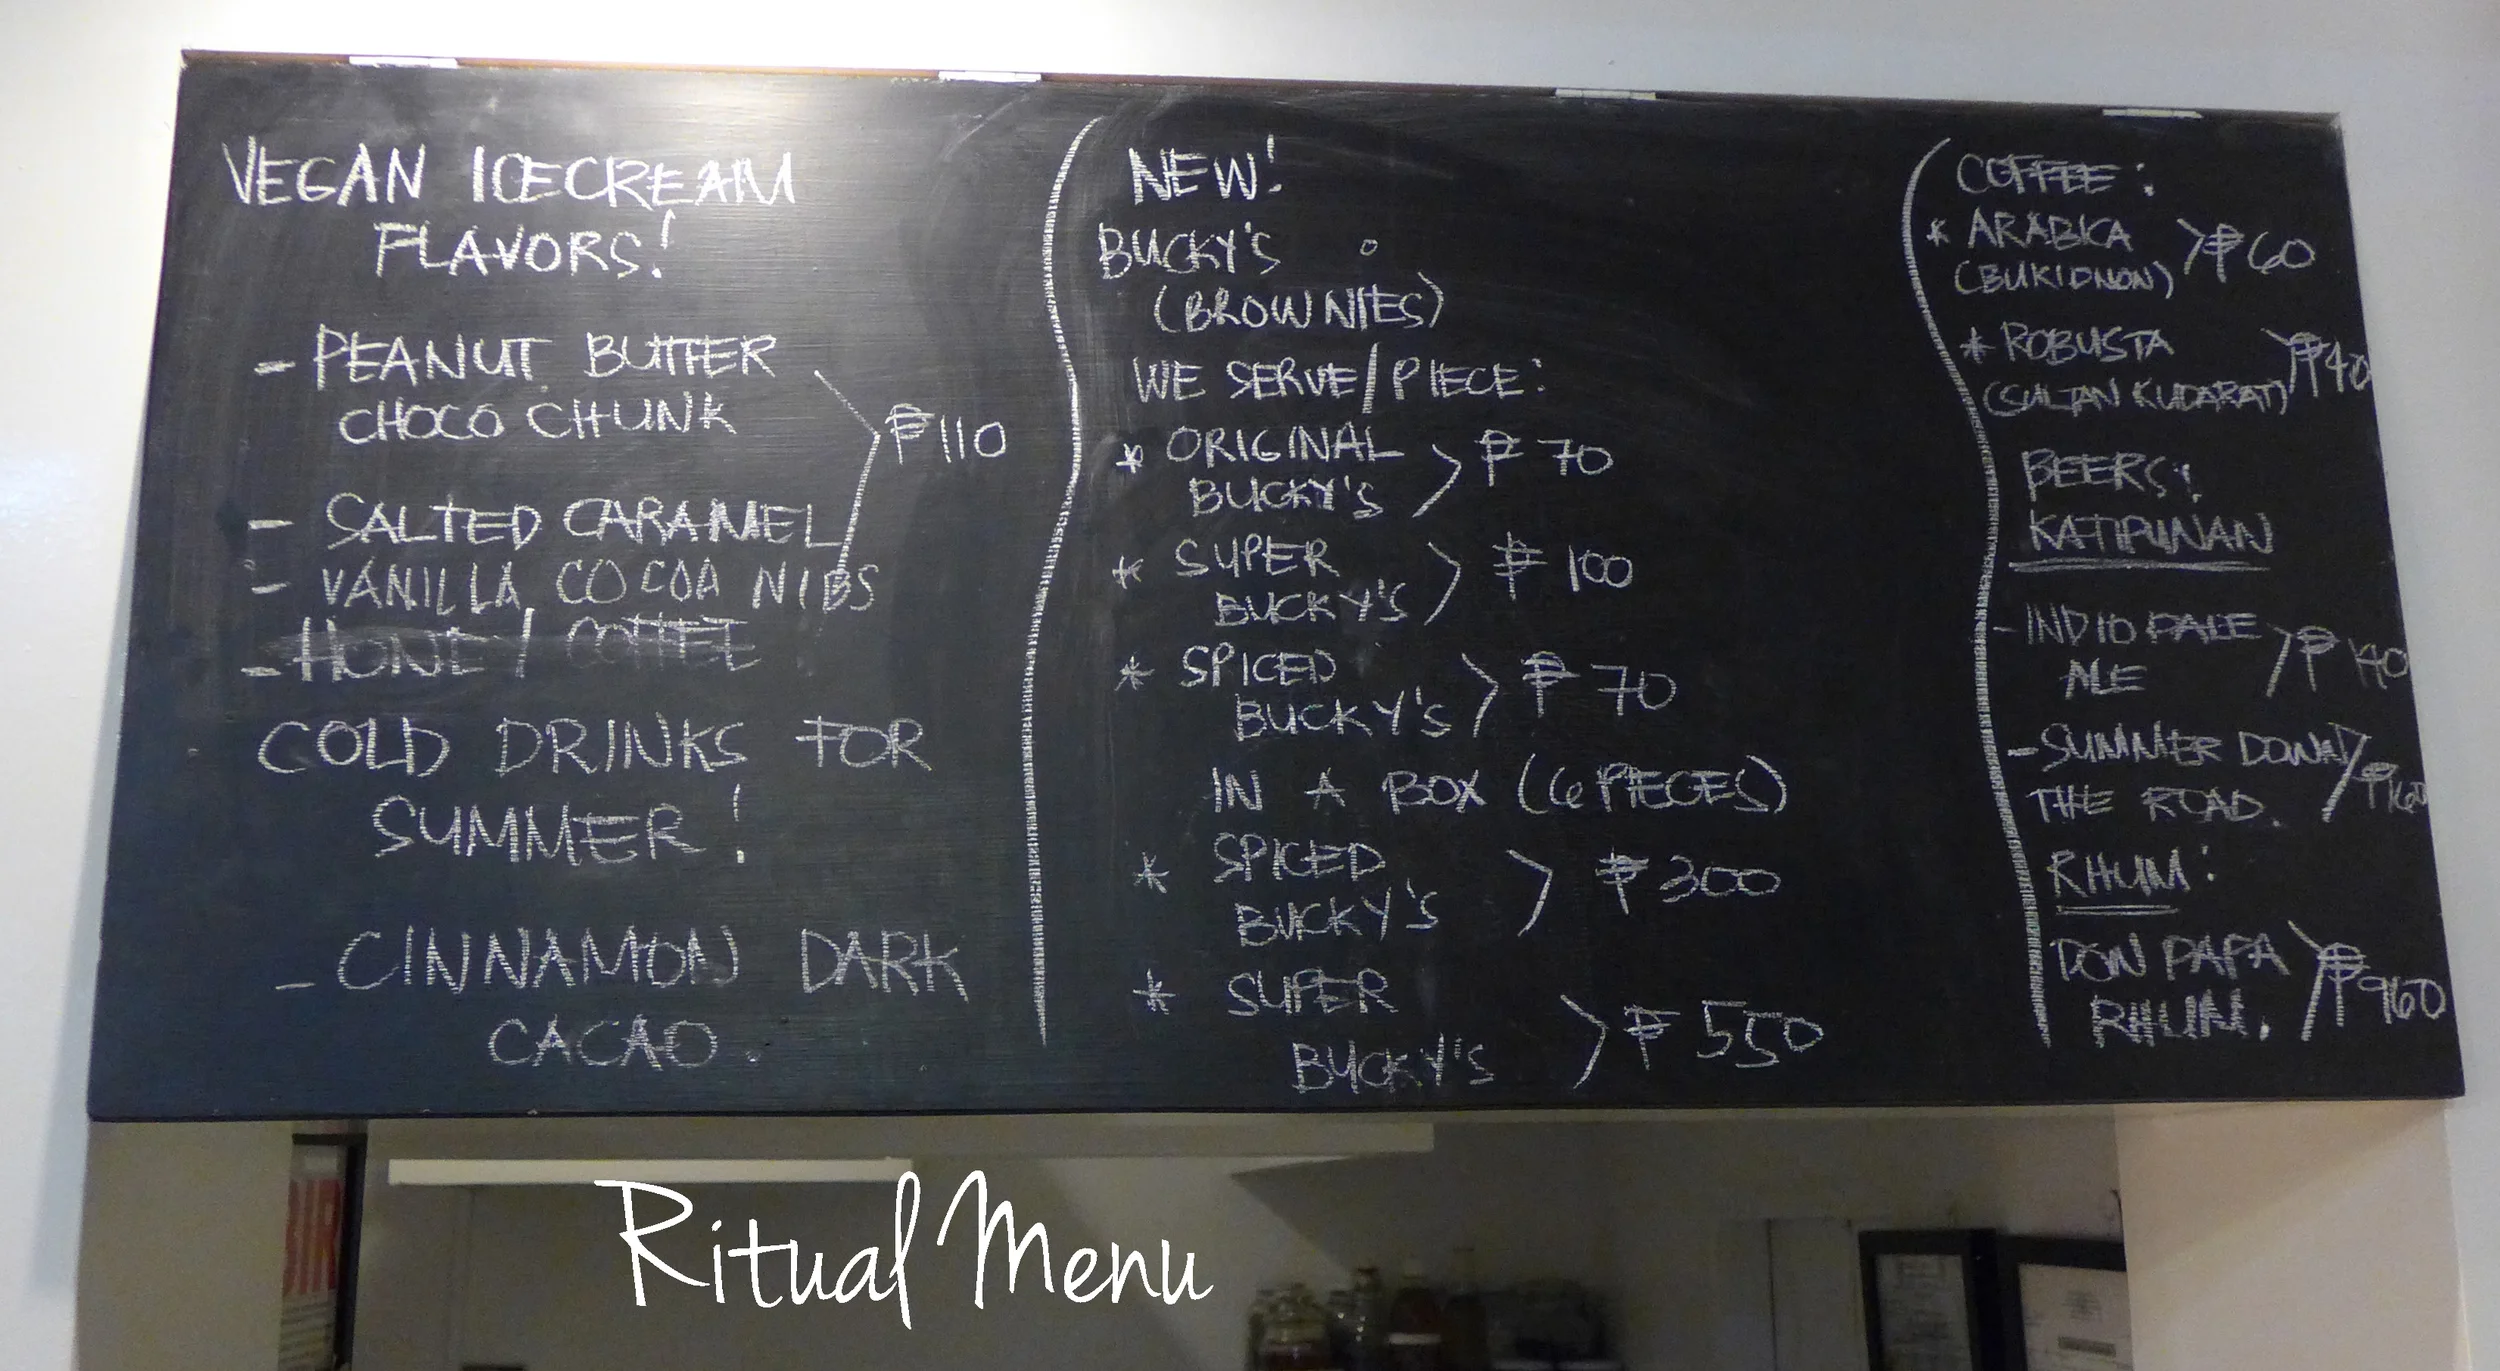 VEGAN ICECREAM
FLAVORS!
- PEANUT BUTTER
CHOCO CHUNK
₱110
- SALTED CARAMEL
- VANILLA COCOA NIBS
- HONEY/ COFFEE
COLD DRINKS FOR
SUMMER!
- CINNAMON DARK
CACAO.
NEW!
BUCKY'S
(BROWNIES)
WE SERVE/PIECE:
* ORIGINAL
BUCKY'S > ₱ 70
* SUPER
BUCKY'S > ₱ 100
* SPICED
BUCKY'S > ₱ 70
IN A BOX (6 PIECES)
* SPICED
BUCKY'S > ₱ 300
* SUPER
BUCKY'S > ₱ 550
COFFEE:
* ARABICA
(BUKIDNON) > ₱60
* ROBUSTA
(SULTAN KUDARAT) > ₱40
BEERS:
KATIPUNAN
- INDIO PALE
ALE > ₱140
- SUMMER DOWN
THE ROAD. > ₱160
RHUM:
DON PAPA
RHUM. > ₱960
Ritual Menu